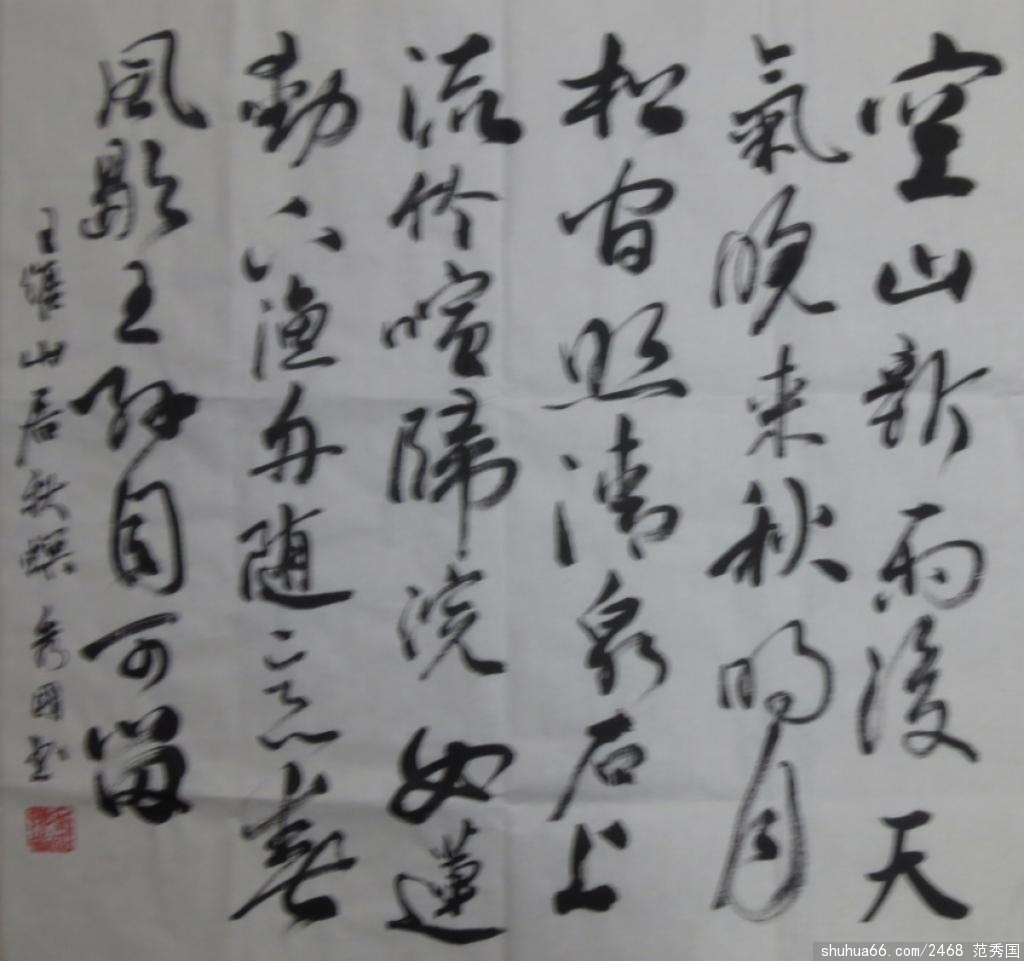 空山新雨後天
氣晚来秋明月
松间照清泉石上
流竹喧歸浣女蓮
動下漁舟随意春
風歇王孫自可留
王维山居秋暝 秀國书
shuhua66.com/2468 范秀国